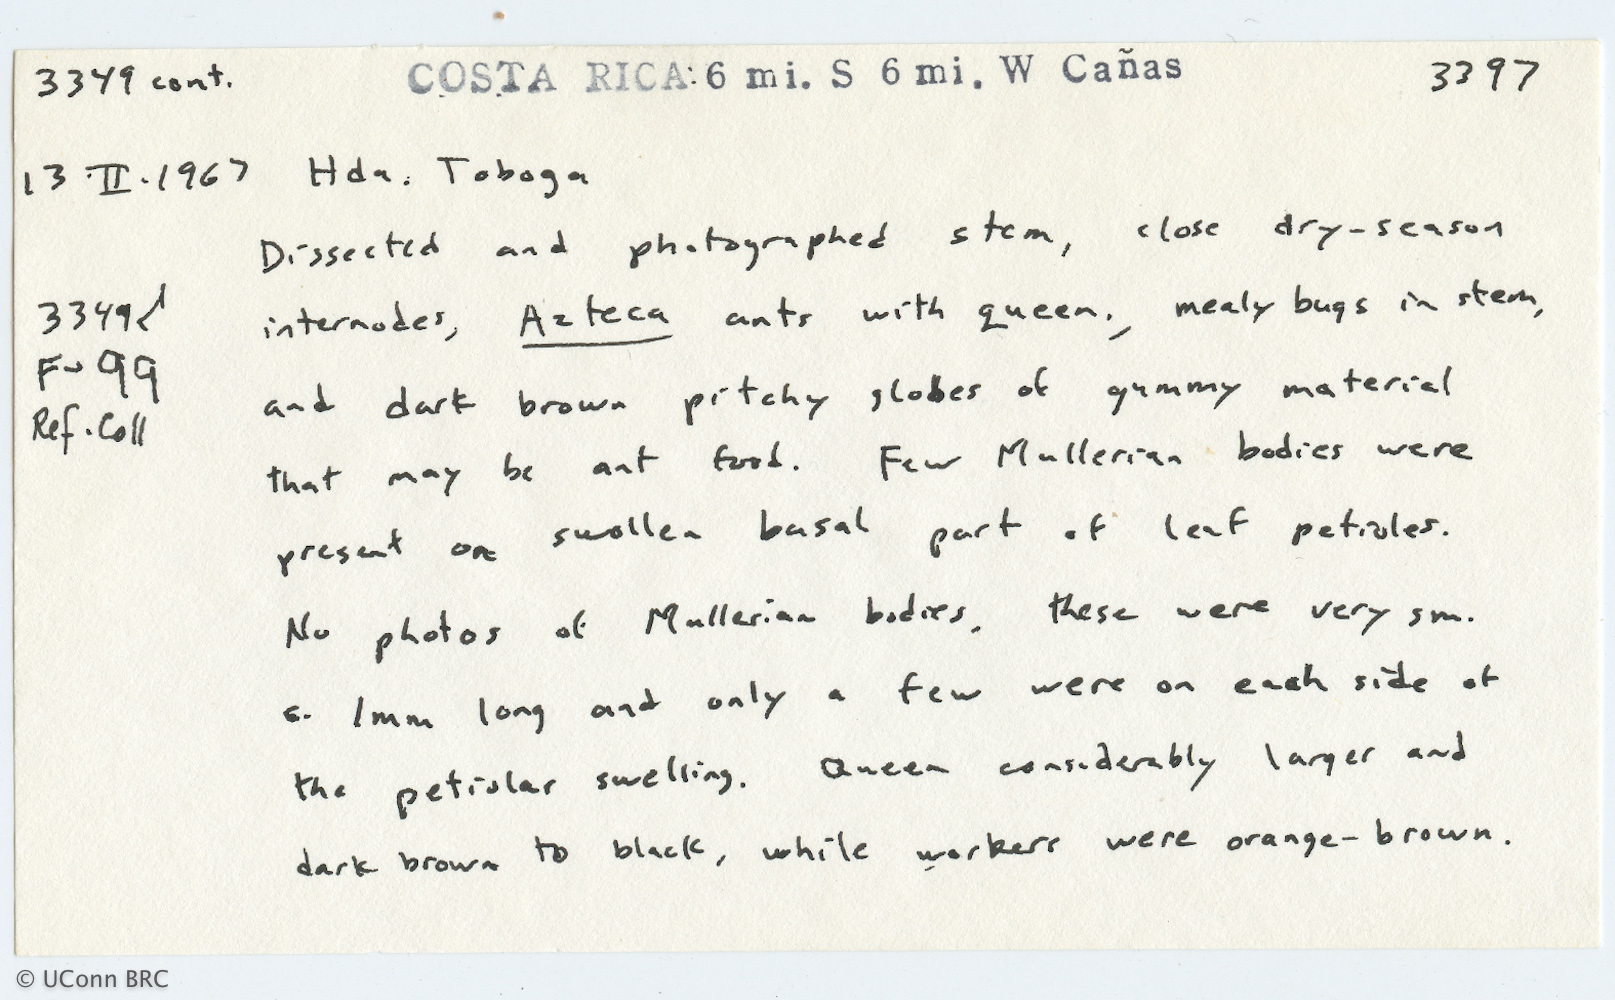 3349 cont. COSTA RICA: 6 mi. S 6 mi. W Cañas 3397
13.II.1967 Hda. Toboga
Dissected and photographed stem, close dry-season
3349d internodes, Azteca ants with queen, mealy bugs in stem,
F-99 and dark brown pitchy globes of gummy material
Ref. Coll that may be ant food. Few Mullerian bodies were
present on swollen basal part of leaf petioles.
No photos of Mullerian bodies, these were very sm.
c. 1mm long and only a few were on each side of
the petiolar swelling. Queen considerably larger and
dark brown to black, while workers were orange-brown.
© UConn BRC